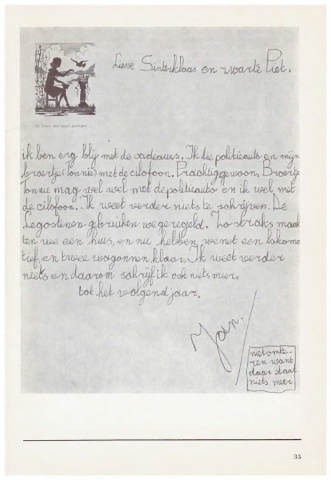 Lieve Sinterklaas en zwarte Piet.
ik ben erg blij met de cadeaus. Ik de politieauto en mijn
broertje (Connie) met de cilofoon. Prachtig gewoon. Broertje
Connie mag wel wel met de politieauto en ik wel met
de cilofoon. Ik weet verder niets te schrijven. De
Legostenen gebruiken we geregeld. Zo straks maak
ten we een huis, en nu hebben we net een lokomo
tief, en twee wagonnen klaar. Ik weet verder
niets en daarom schrijf ik ook niets meer.
tot het volgend jaar.
Jan.
niet omke-
ren want
daar staat
niets meer
33